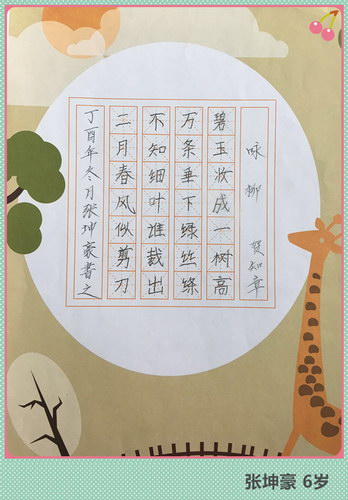 咏柳 贺知章
碧玉妆成一树高
万条垂下绿丝绦
不知细叶谁裁出
二月春风似剪刀
丁酉年冬月张坤豪书之
张坤豪 6岁